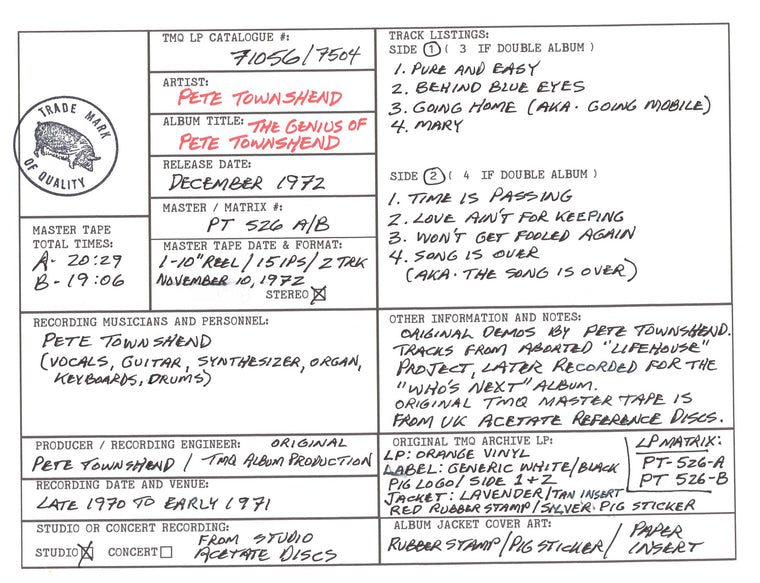 TRADE MARK
OF QUALITY
MASTER TAPE
TOTAL TIMES:
A- 20:29
B- 19:06
TMQ LP CATALOGUE #:
71056/7504
ARTIST:
PETE TOWNSHEND
ALBUM TITLE: THE GENIUS OF
PETE TOWNSHEND
RELEASE DATE:
DECEMBER 1972
MASTER / MATRIX #:
PT 526 A/B
MASTER TAPE DATE & FORMAT:
1-10" REEL / 15 IPS / 2 TRK
NOVEMBER 10, 1972
STEREO ☒
TRACK LISTINGS:
SIDE 1 ( 3 IF DOUBLE ALBUM )
1. PURE AND EASY
2. BEHIND BLUE EYES
3. GOING HOME (AKA · GOING MOBILE)
4. MARY
SIDE 2 ( 4 IF DOUBLE ALBUM )
1. TIME IS PASSING
2. LOVE AIN'T FOR KEEPING
3. WON'T GET FOOLED AGAIN
4. SONG IS OVER
(AKA · THE SONG IS OVER)
RECORDING MUSICIANS AND PERSONNEL:
PETE TOWNSHEND
(VOCALS, GUITAR, SYNTHESIZER, ORGAN,
KEYBOARDS, DRUMS)
OTHER INFORMATION AND NOTES:
ORIGINAL DEMOS BY PETE TOWNSHEND.
TRACKS FROM ABORTED "LIFEHOUSE"
PROJECT, LATER RECORDED FOR THE
"WHO'S NEXT" ALBUM.
ORIGINAL TMQ MASTER TAPE IS
FROM UK ACETATE REFERENCE DISCS.
PRODUCER / RECORDING ENGINEER: ORIGINAL
PETE TOWNSHEND / TMQ ALBUM PRODUCTION
RECORDING DATE AND VENUE:
LATE 1970 TO EARLY 1971
STUDIO OR CONCERT RECORDING:
FROM STUDIO
STUDIO ☒ CONCERT ☐ ACETATE DISCS
ORIGINAL TMQ ARCHIVE LP:
LP: ORANGE VINYL
LABEL: GENERIC WHITE/BLACK
PIG LOGO / SIDE 1 + 2
JACKET: LAVENDER / TAN INSERT
RED RUBBER STAMP / SILVER PIG STICKER
LP MATRIX:
PT-526-A
PT 526-B
ALBUM JACKET COVER ART:
RUBBER STAMP / PIG STICKER / PAPER
INSERT